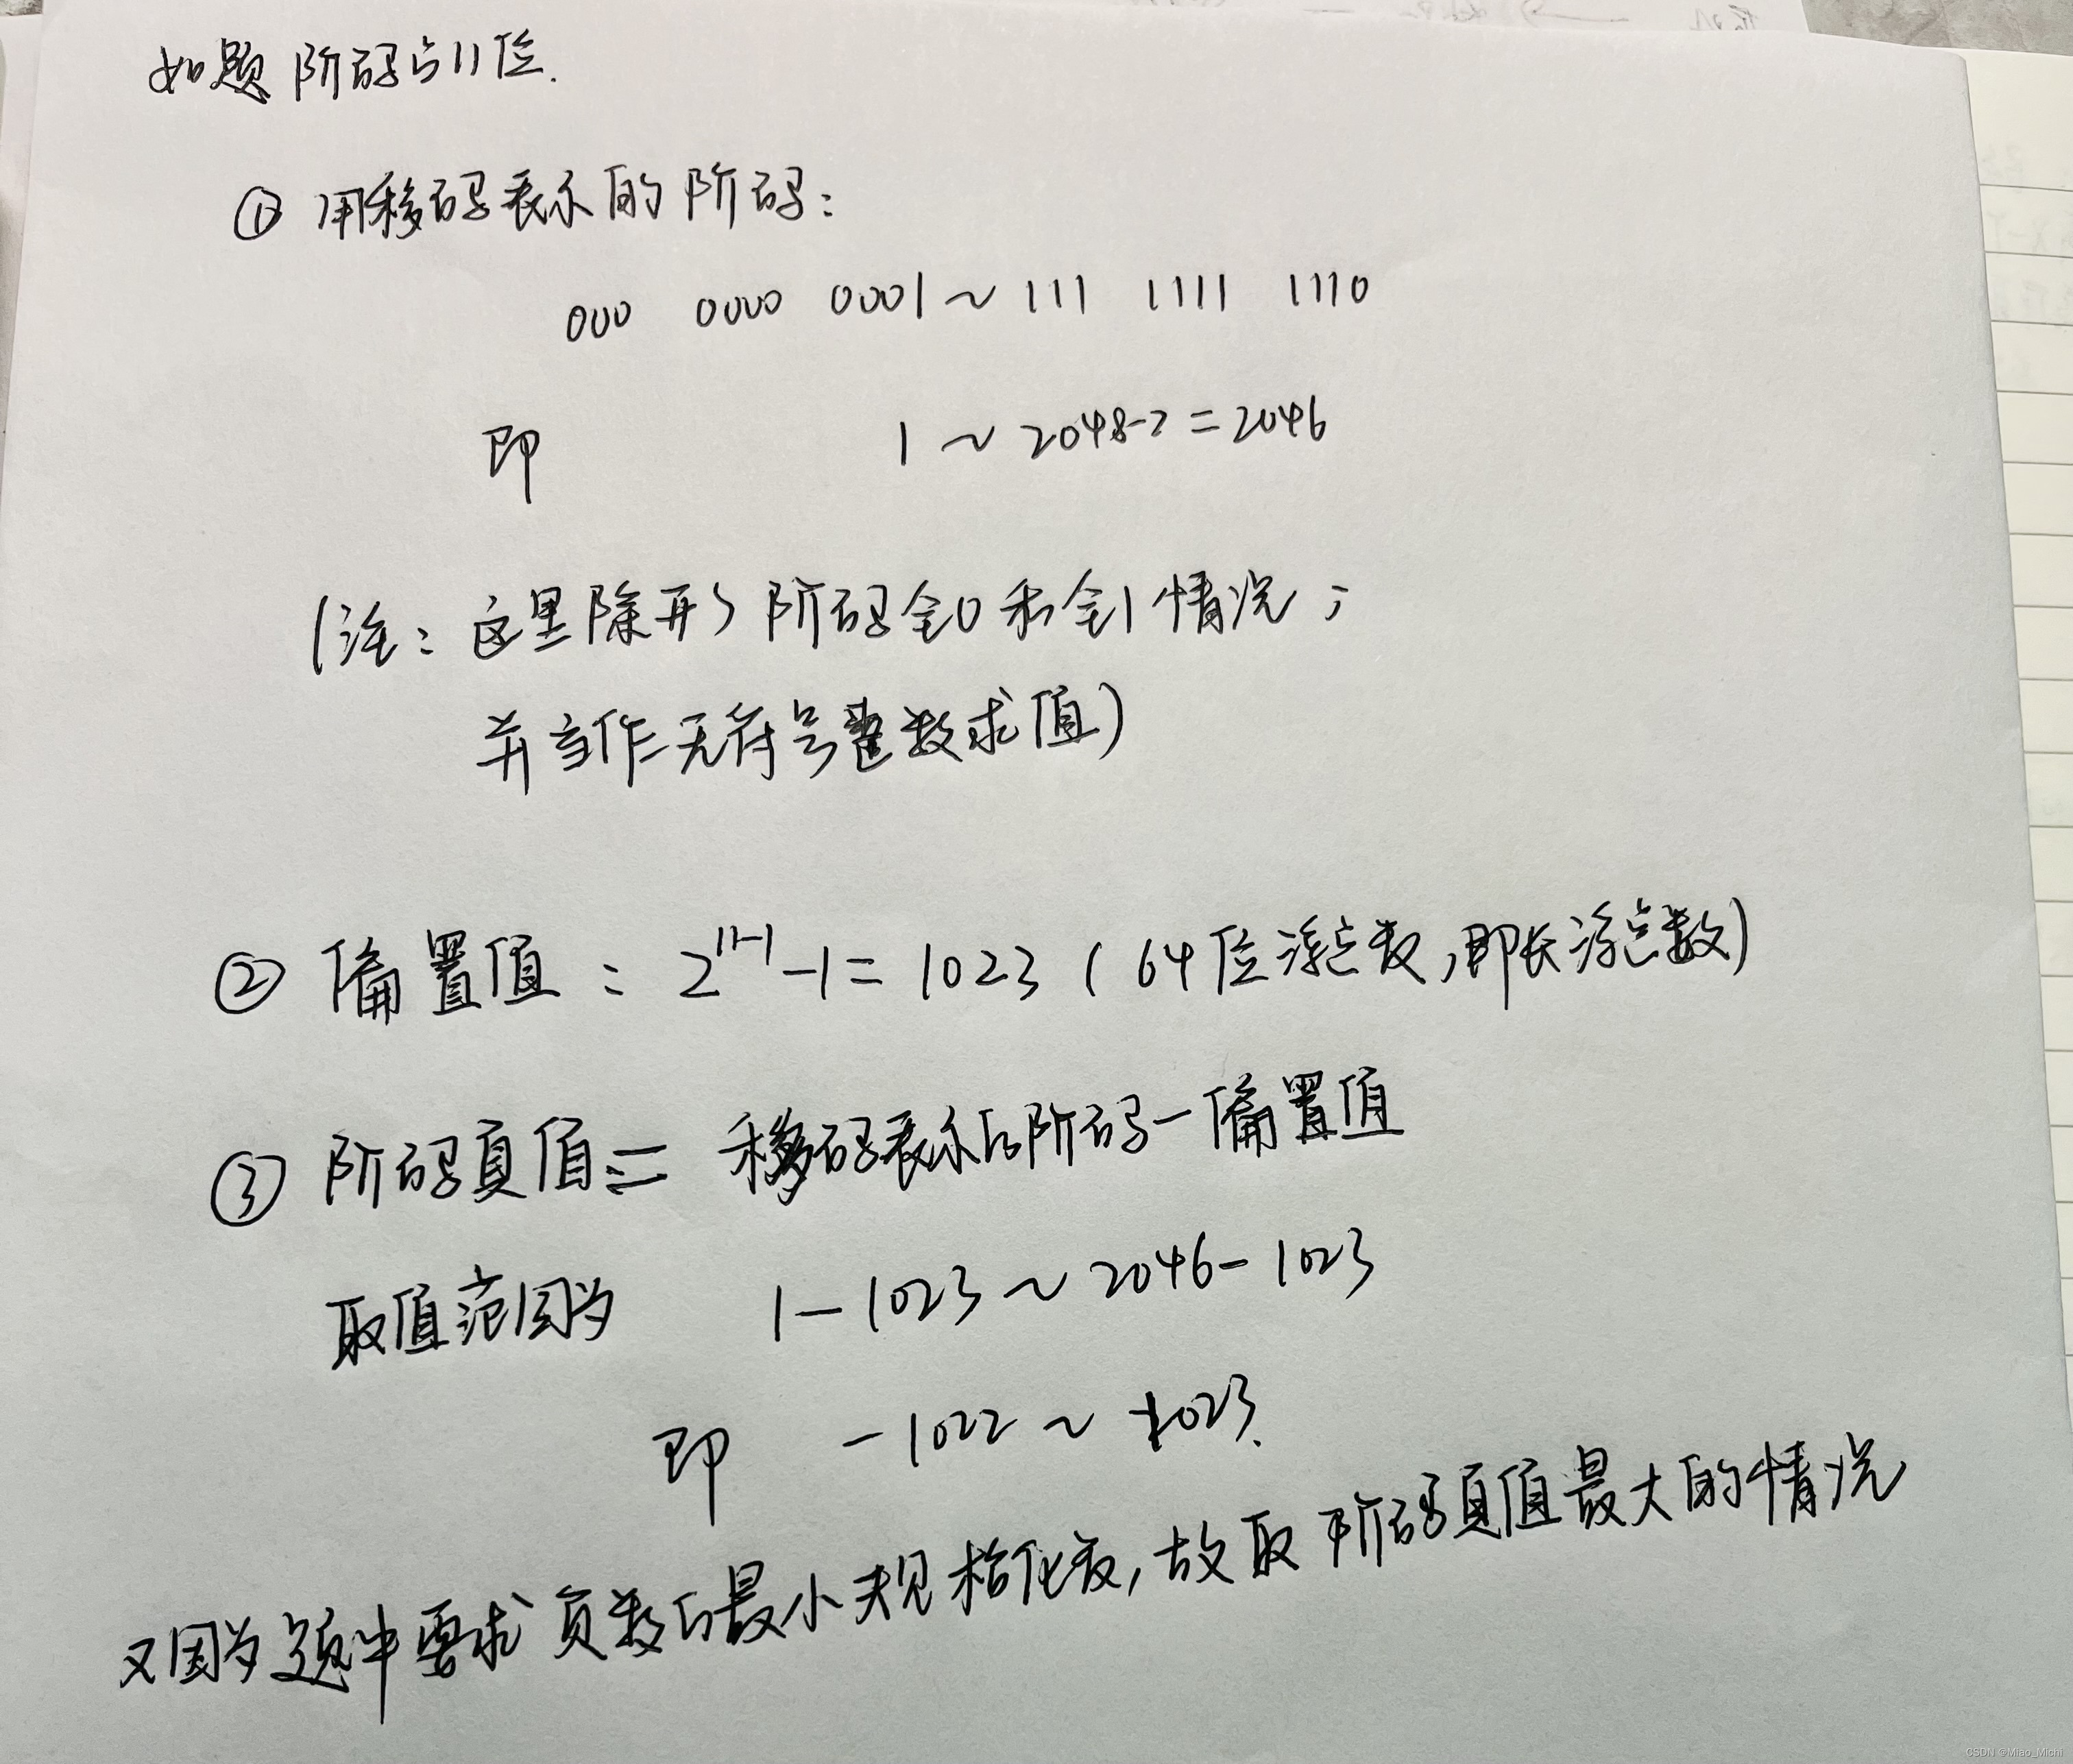 如题 阶码占11位.
① 用移码表示的阶码:
000 0000 0001 ~ 111 1111 1110
即 1 ~ 2048-2 = 2046
(注: 这里除开了阶码全0和全1情况;
并当作无符号整数求值)
② 偏置值: 2^{11-1}-1 = 1023 (64位浮点数,即长浮点数)
③ 阶码真值 = 移码表示的阶码-偏置值
取值范围为 1-1023 ~ 2046-1023
即 -1022 ~ 1023.
又因为题中要求负数的最小规格化数,故取阶码真值最大的情况
CSDN @Miao_Michi